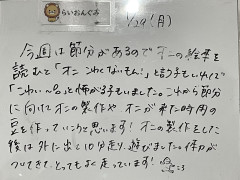 らいおんぐみ
1/29(月)
今週は節分があるのでオニの絵本を
読むと「オニこわくないもん!」と言う子もいれば
「こわい…。」と怖がる子もいました。これから節分
に向けてオニの製作やオニが来た時用の
豆を作っていこうと思います!オニの製作をした
後は外に出て10分走り、遊びました。体力が
ついてきて、とってもよく走っています!